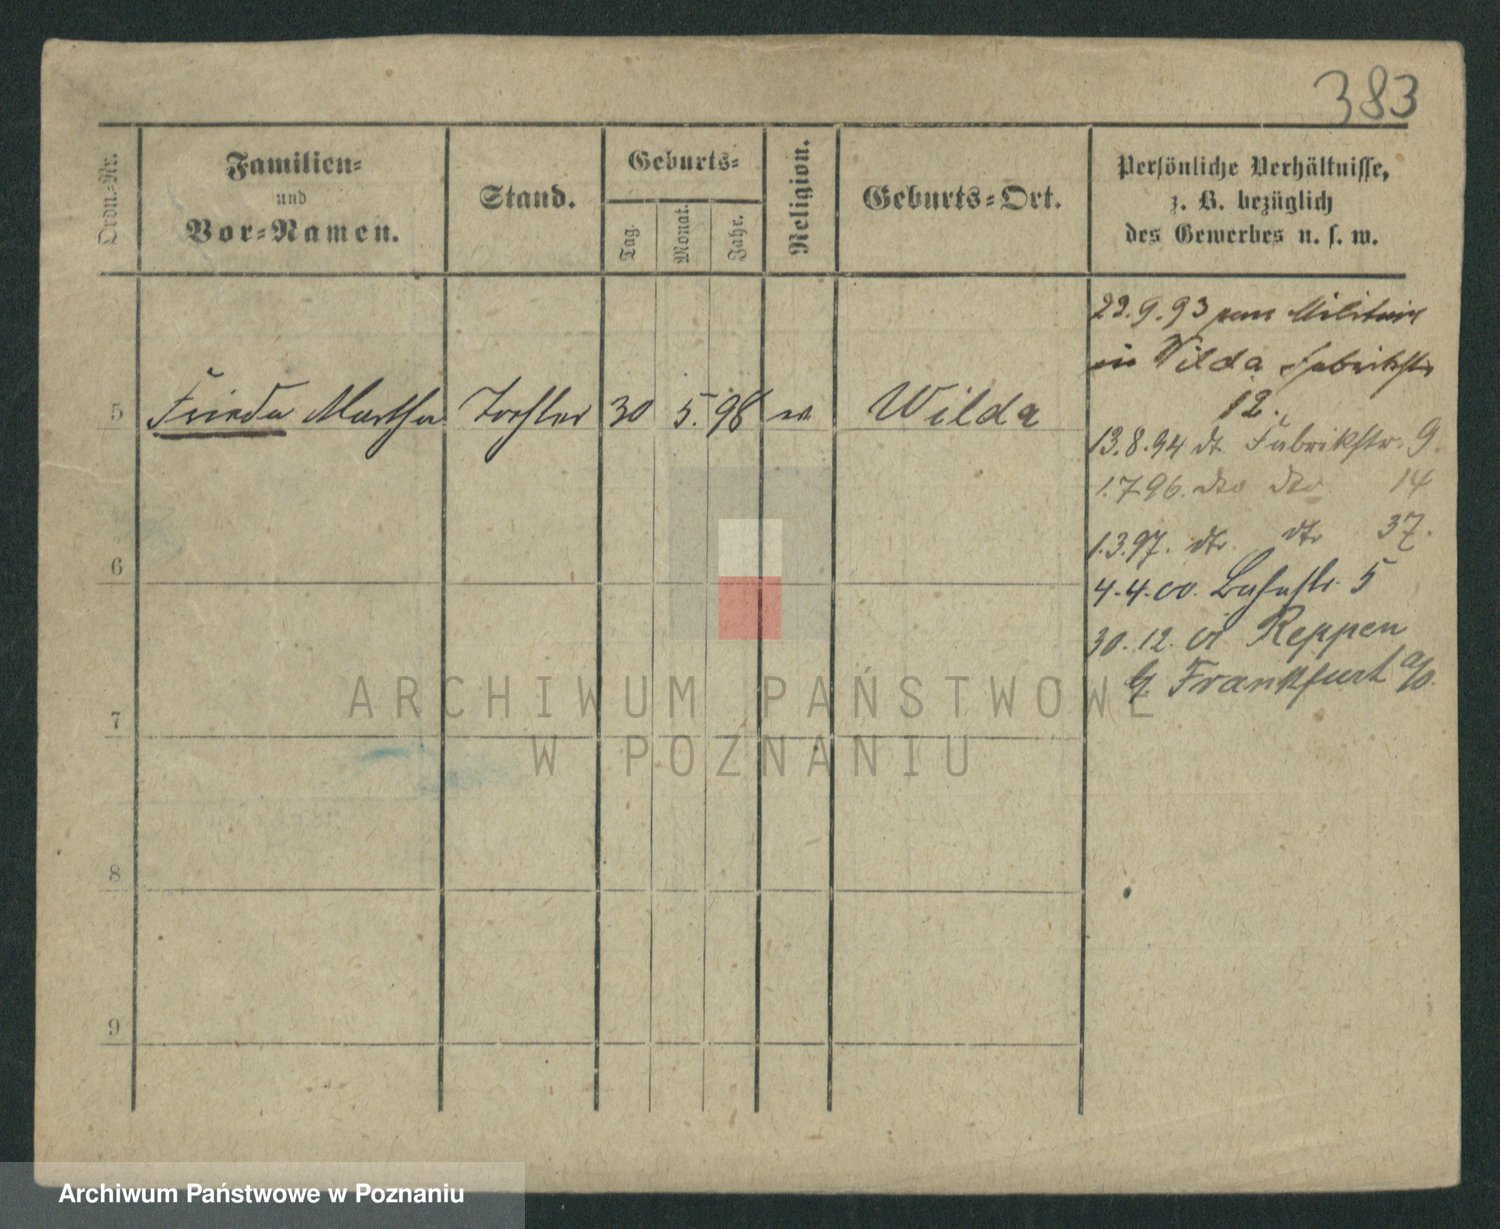 383
Ordn.-Nr.
Familien-
und
Vor-Namen.
Stand.
Geburts-
Tag.
Monat.
Jahr.
Religion.
Geburts-Ort.
Persönliche Verhältnisse,
z. B. bezüglich
des Gewerbes u. s. w.
5 Frieda Martha Tochter 30 5. 98 ev Wilda
6
7
8
9
.9.93 vom Militair
in Wilda Fabrikstr
12.
13.8.94 dt. Fabrikstr. 9.
1.7.96. dto dto 14
1.3.97. dto dto 37.
4.4.00. Bahnstr. 5
30.12. 01 Reppen
b/ Frankfurt a/O.
ARCHIWUM PAŃSTWOWE
W POZNANIU
Archiwum Państwowe w Poznaniu